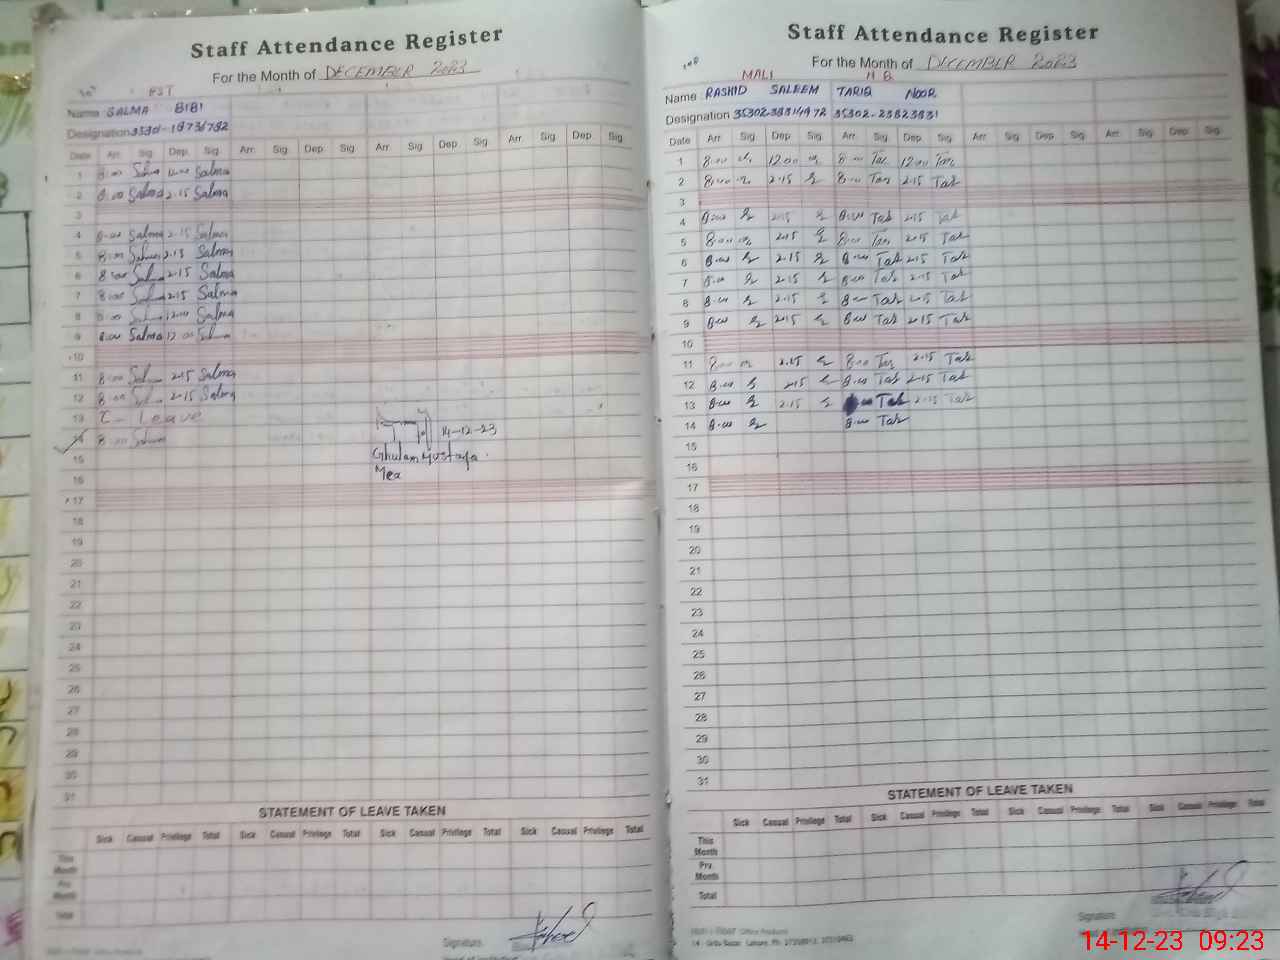 Staff Attendance Register
For the Month of DECEMBER 2023
PST
Name SALMA BIBI
Designation
Date Arr. Sig. Dep. Sig. Arr. Sig. Dep. Sig. Arr. Sig. Dep. Sig. Arr. Sig. Dep. Sig.
1 8:00 Salma 12:00 Salma
2 8:00 Salma 2.15 Salma
3
4 8:00 Salma 2.15 Salma
5 8:00 Salma 2.15 Salma
6 8:00 Salma 2.15 Salma
7 8:00 Salma 2.15 Salma
8 8:00 Salma 12:00 Salma
9 8:00 Salma 12:00 Salma
10
11 8:00 Salma 2.15 Salma
12 8:00 Salma 2.15 Salma
13 C - Leave
14 8:00 Salma
14-12-23
15
Ghulam Mustafa
16
Mea
17
18
19
20
21
22
23
24
25
26
27
28
29
30
31
STATEMENT OF LEAVE TAKEN
Sick Casual Privilege Total Sick Casual Privilege Total Sick Casual Privilege Total Sick Casual Privilege Total
This Month
Prv. Month
Total
Signature
Staff Attendance Register
For the Month of DECEMBER 2023
MALI N.Q.
Name RASHID SALEEM TARIQ NOOR
Designation
Date Arr. Sig. Dep. Sig. Arr. Sig. Dep. Sig. Arr. Sig. Dep. Sig. Arr. Sig. Dep. Sig.
1 8:00 12:00 8:00 Tar 12:00 Tar
2 8:00 2.15 8:00 Tar 2.15 Tar
3
4 8:00 2.15 8:00 Tar 2.15 Tar
5 8:00 2.15 8:00 Tar 2.15 Tar
6 8:00 2.15 8:00 Tar 2.15 Tar
7 8:00 2.15 8:00 Tar 2.15 Tar
8 8:00 2.15 8:00 Tar 2.15 Tar
9 8:00 2.15 8:00 Tar 2.15 Tar
10
11 8:00 2.15 8:00 Tar 2.15 Tar
12 8:00 2.15 8:00 Tar 2.15 Tar
13 8:00 2.15 Tar 2.15 Tar
14 8:00 8:00 Tar
15
16
17
18
19
20
21
22
23
24
25
26
27
28
29
30
31
STATEMENT OF LEAVE TAKEN
Sick Casual Privilege Total Sick Casual Privilege Total Sick Casual Privilege Total Sick Casual Privilege Total
This Month
Prv. Month
Total
Signature
14 - Urdu Bazar Lahore. Ph:
14-12-23 09:23